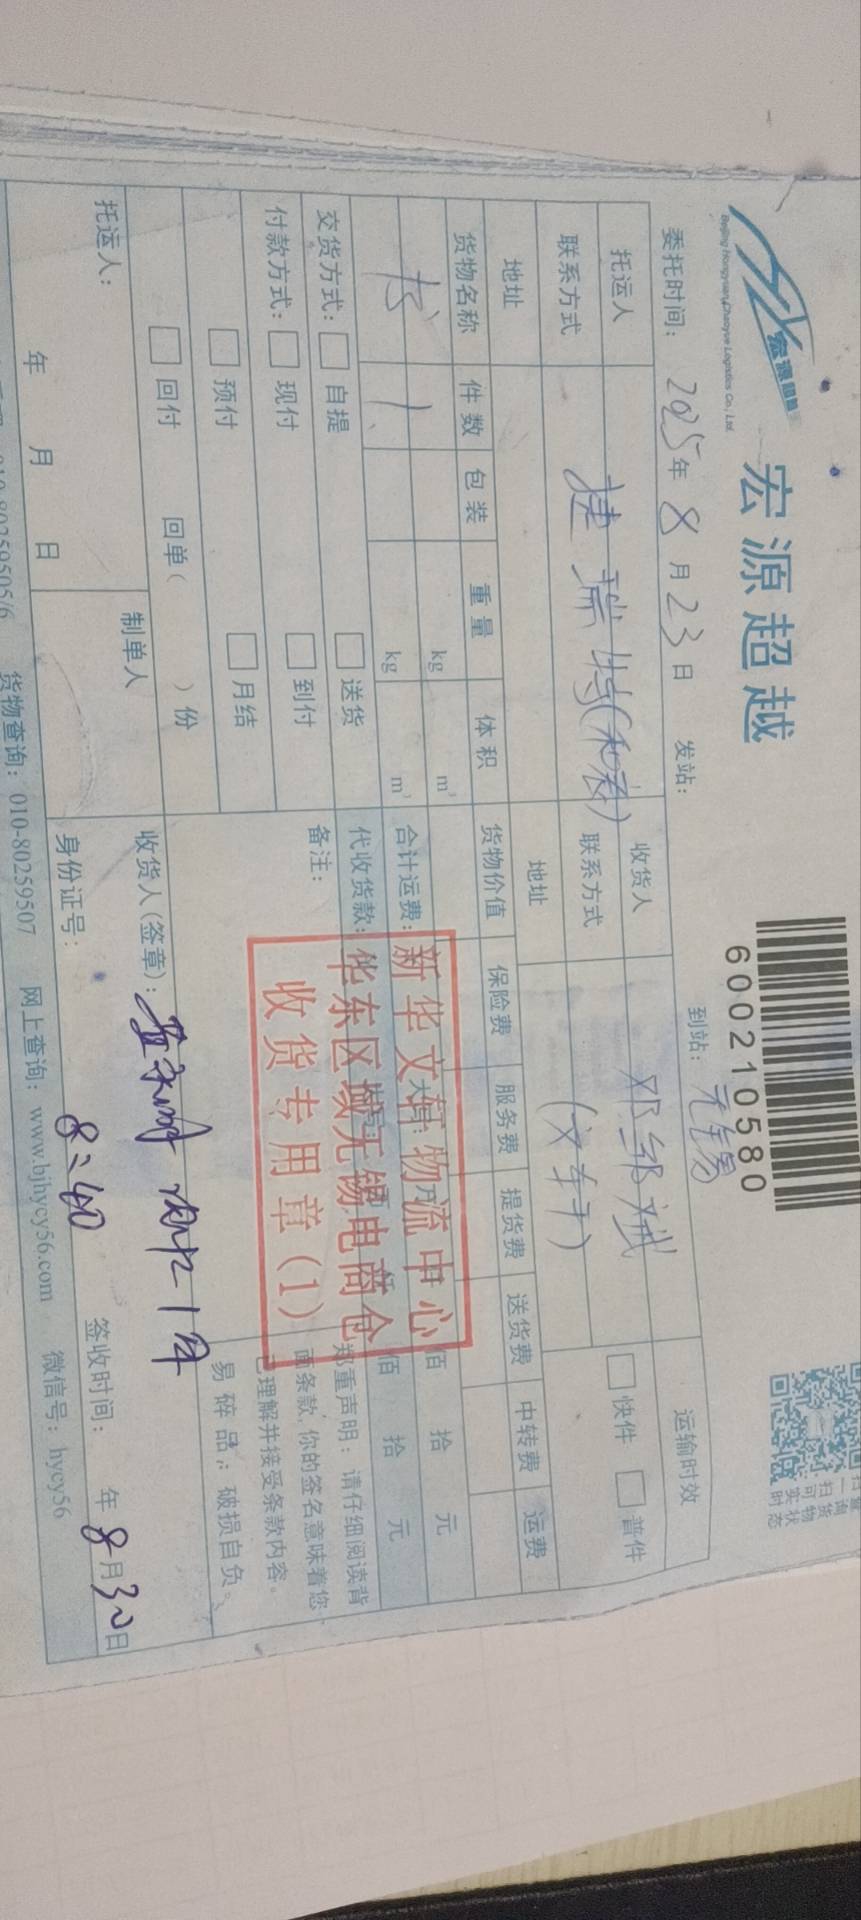 宏源超越
Beijing Hongyuan Chaoyue Logistics Co., Ltd.
宏源超越
600210580
扫货物实时
委托时间: 2025年8月23日 发站: 到站: 无锡
托运人 捷瑞特(和衷) 收货人 邓邹斌 运输时效
联系方式 联系方式 (文轩) 快件 普件
地址 地址
货物名称 件数 包装 重量 体积 货物价值 保险费 服务费 提货费 送货费 中转费 运费
书 1 kg m³ 合计运费: 佰 拾 元
kg m³ 代收货款: 佰 拾 元
交货方式: 自提 送货 备注:
付款方式: 现付 到付
预付 月结
回付 回单( )份
新华文轩物流中心
华东区域无锡电商仓
收货专用章(1)
郑重声明:请仔细阅读背
面条款,你的签名意味着您
已理解并接受条款内容。
易碎品:破损自负。
托运人: 制单人 收货人(签章):
年 月 日 身份证号: 8:40 签收时间: 年8月30日
货物查询: 010-80259507 网上查询: www.bjhycy56.com 微信号: hycy56